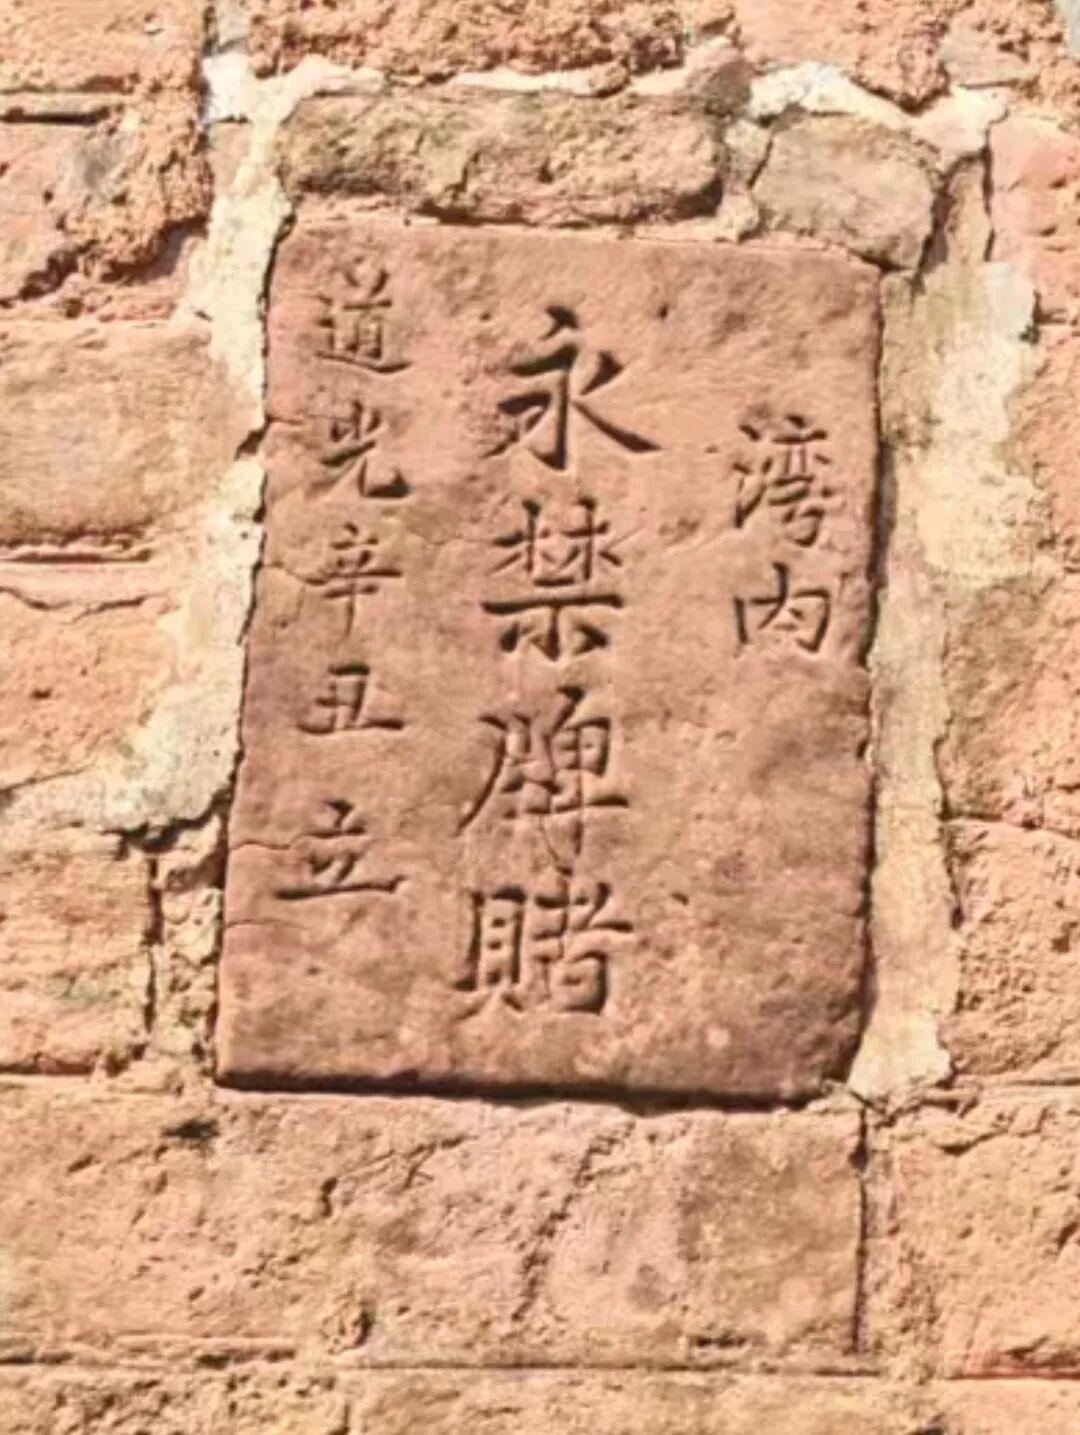 湾内
永禁牌賭
道光辛丑立